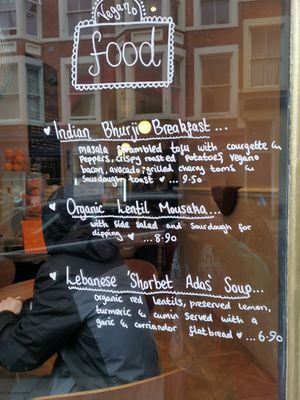 Vegano
food
♥ Indian Bhurji Breakfast...
masala scrambled tofu with courgette &
Peppers, crispy roasted potatoes, vegano
bacon, avocado, grilled cherry toms &
Sourdough toast ♥ ... 9.50
♥ Organic Lentil Mousaka...
with side salad and sourdough for
dipping ♥ ... 8.90
♥ Lebanese 'Shorbet Adas' Soup...
organic red lentils, preserved lemon,
turmeric & cumin served with a
garlic & corriander flatbread ♥ ... 6.90